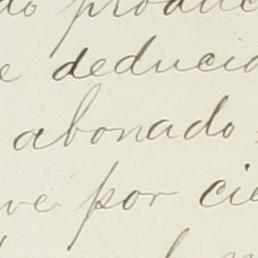 do produc
e deducido
abonado
ve por cie